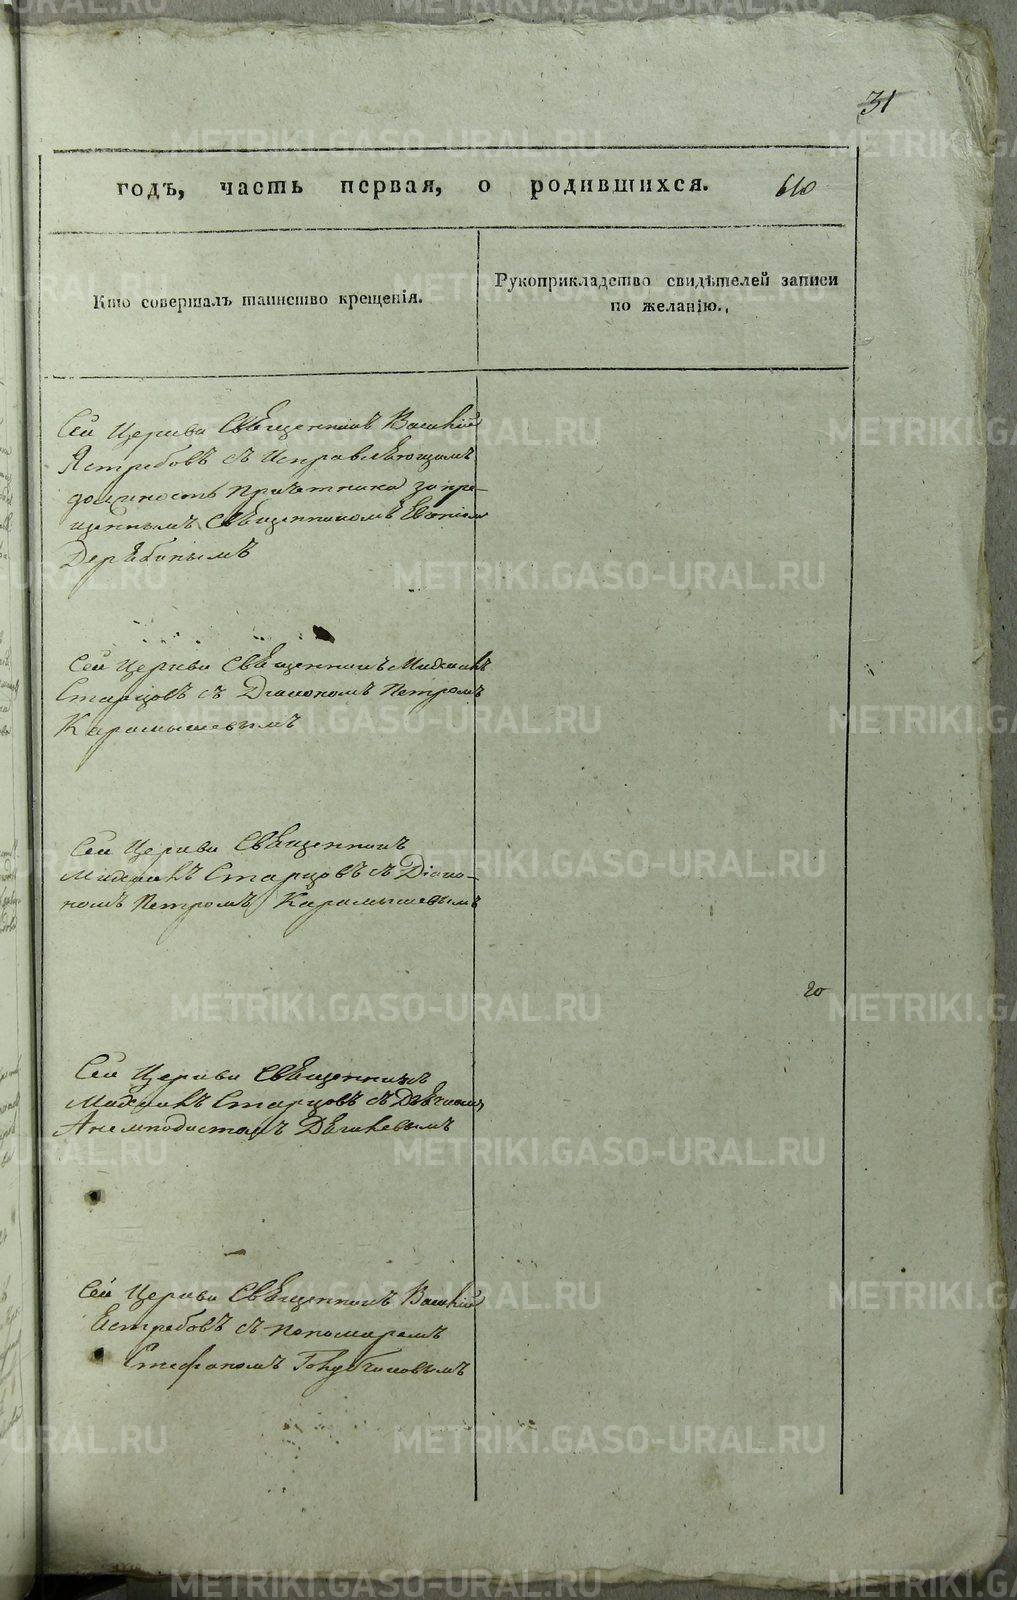 31
годъ, часть первая, о родившихся. 610
Кто совершалъ таинство крещенія.
Рукоприкладство свидѣтелей записи
по желанію.
Сей Церкви Священникъ Василій
Ястребовъ съ Исправляющимъ
должность причетника запре-
щеннымъ Священникомъ
Дерябинымъ
Сей Церкви Священникъ Михаилъ
Старцовъ съ Діакономъ Петромъ
Карамышевымъ
Сей Церкви Священникъ
Михаилъ Старцовъ съ Діако-
номъ Петромъ Карамышевымъ
20
Сей Церкви Священникъ
Михаилъ Старцовъ съ Дьячкомъ
Анемподистомъ Дягилевымъ
Сей Церкви Священникъ Василій
Естребовъ съ пономаремъ
Стефаномъ Голубчиковымъ
METRIKI.GASO-URAL.RU